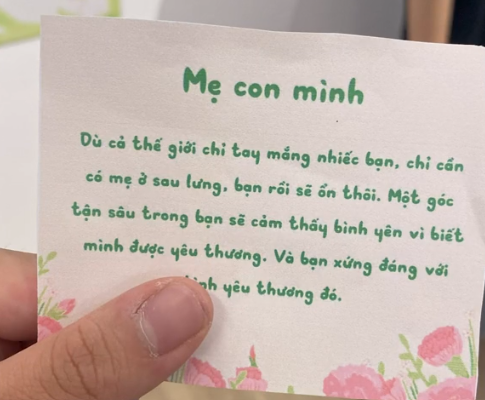 Mẹ con mình
Dù cả thế giới chỉ tay mắng nhiếc bạn, chỉ cần
có mẹ ở sau lưng, bạn rồi sẽ ổn thôi. Một góc
tận sâu trong bạn sẽ cảm thấy bình yên vì biết
mình được yêu thương. Và bạn xứng đáng với
yêu thương đó.